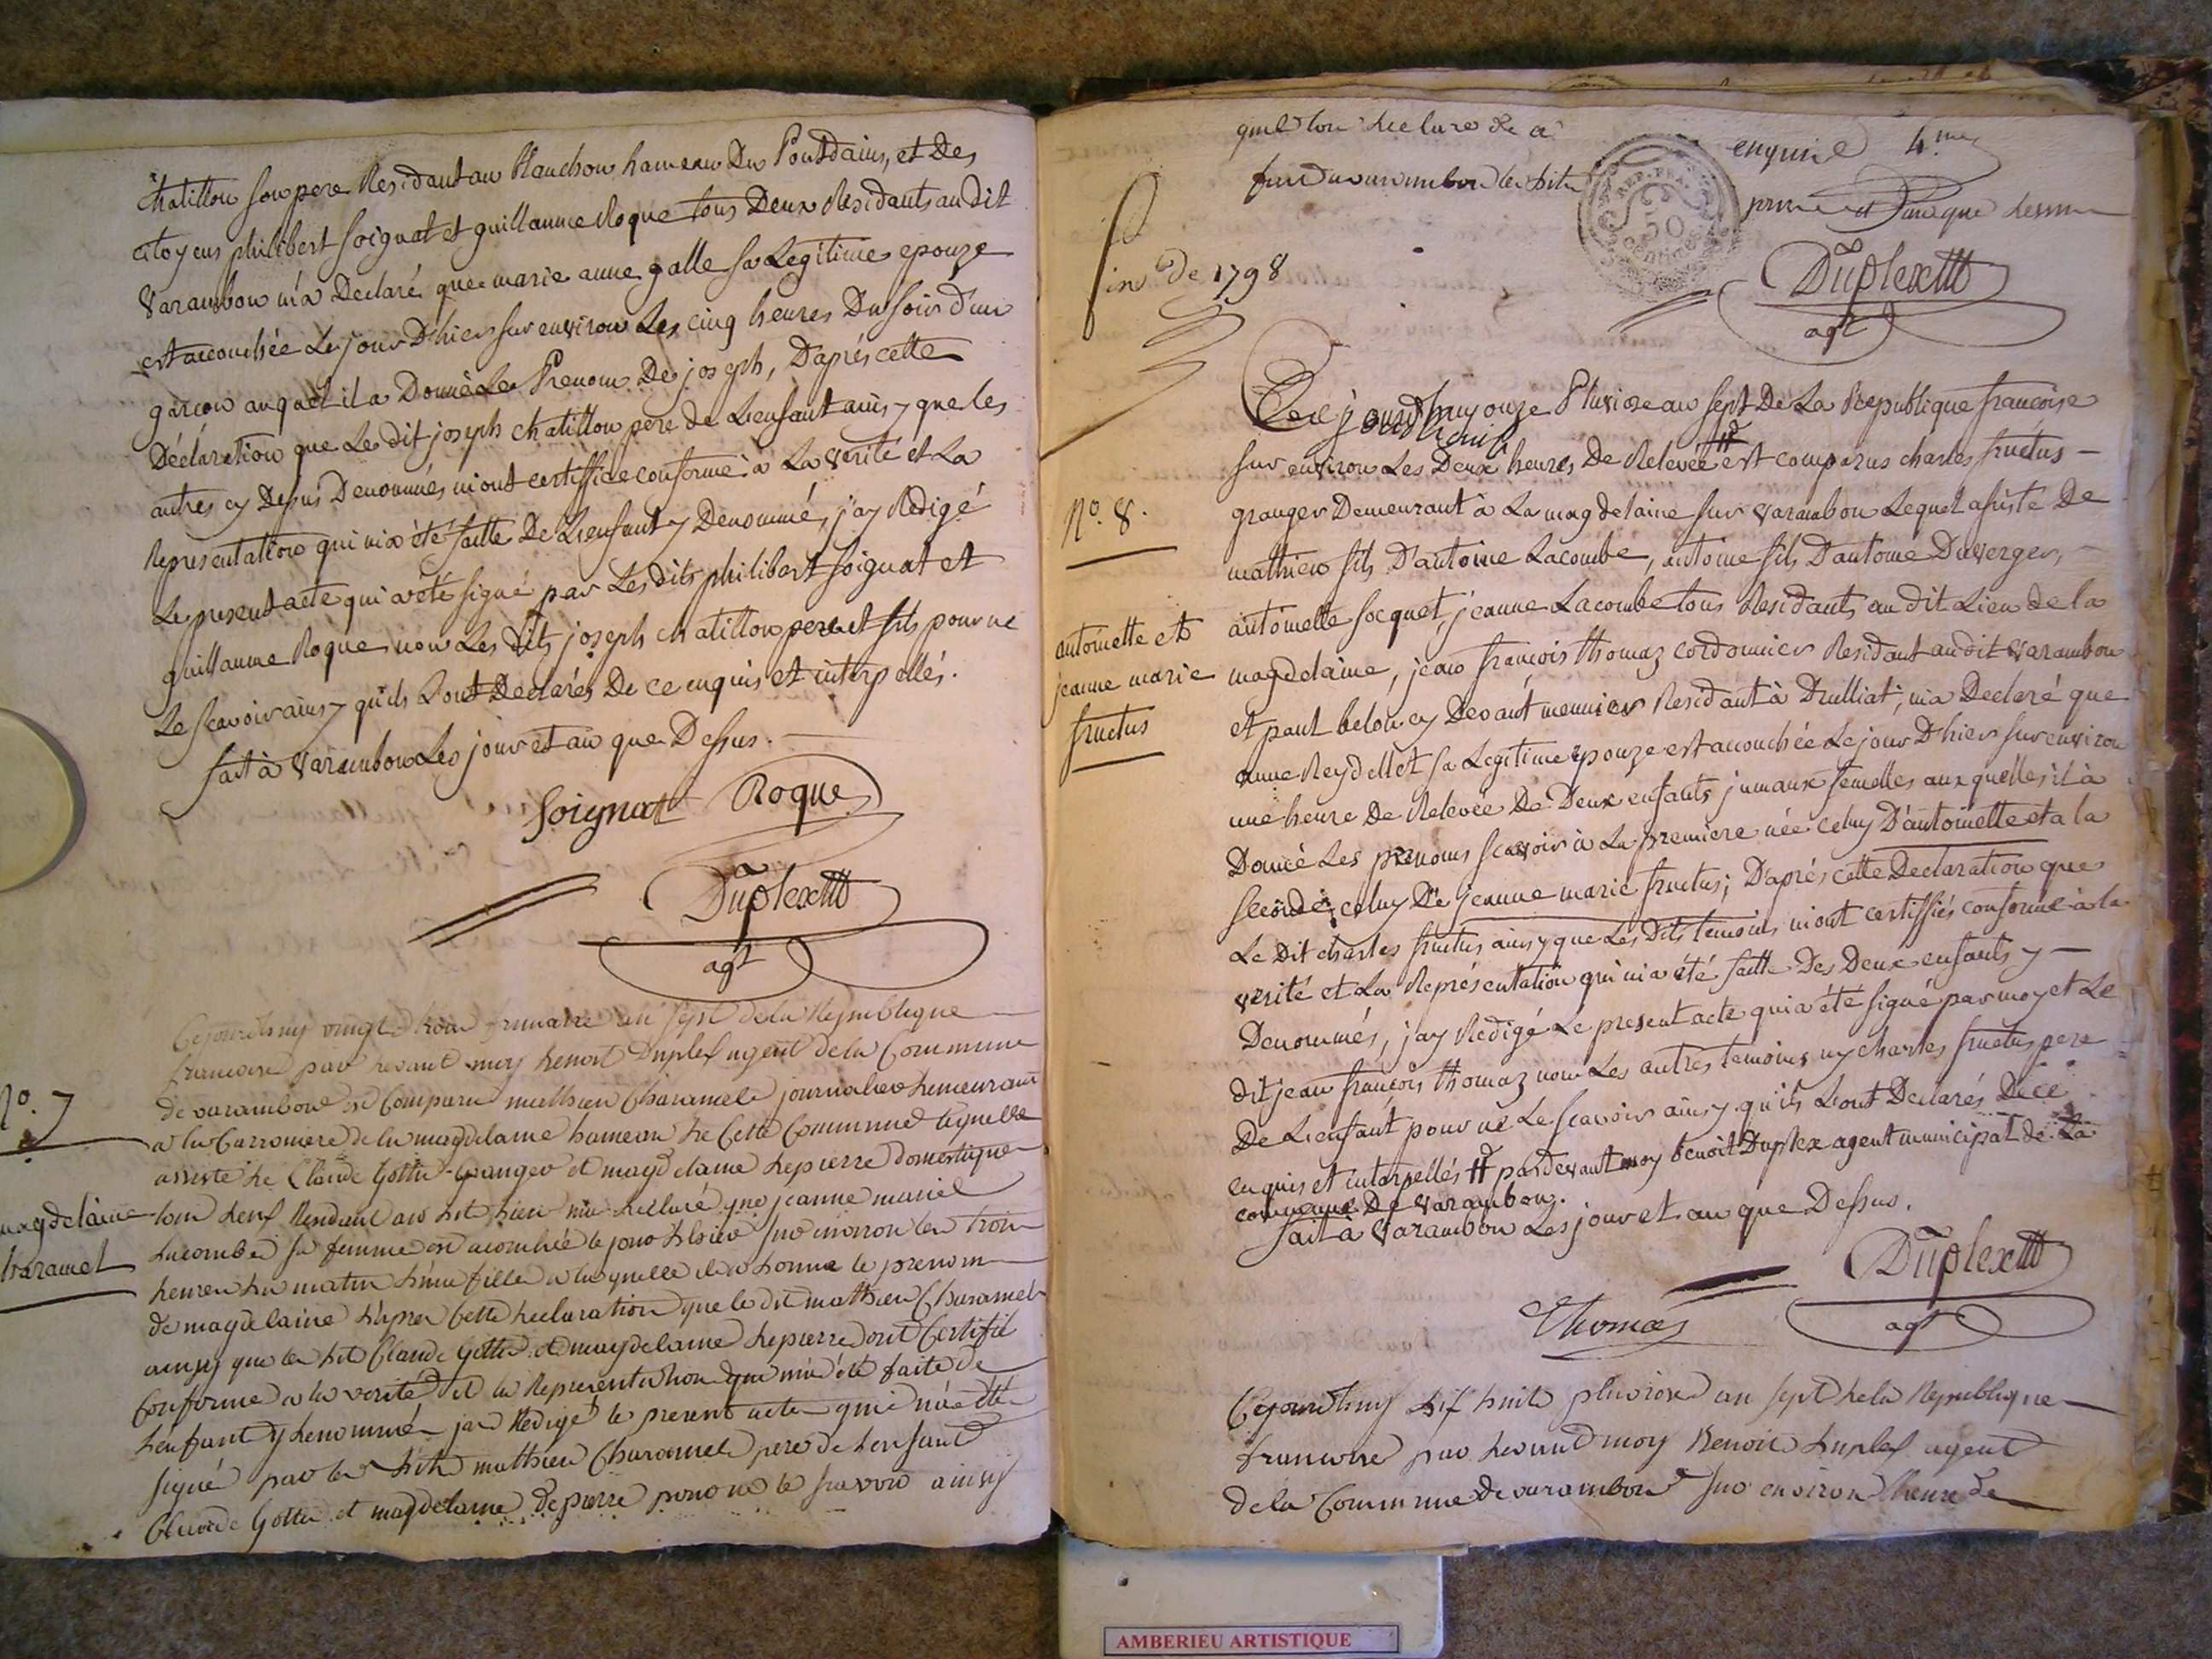 chatillon son pere Residant au Planchon hameau Du Pontdains, et Des
citoyens philibert Soignat et guillaume Roque tous Deux Residants audit
Varambon m'a Declaré que marie anne galle sa Legitime epouze
est accouchée Le jour D'hier sur environ Les cinq heures Du soir d'un
garcon auquel il a Donné Le Prenom De joseph, D'aprés cette
Déclaration que Le dit joseph chatillon pere de Lenfant ainsy que les
autres cy Desus Denommés m'ont certiffiée conforme à La verité et La
Representation qui m'a été faitte De Lenfant y Denommé, j'ay Redigé
Le present acte qui a été signé par Les dits philibert Soignat et
guillaume Roque non Les dits joseph chatillon pere et fils pour ne
Le scavoir ainsy qu'ils L'ont Declarés De ce enquis et interpellés.
fait à Varambon Les jour et an que Dessus.
Soignat Roque
Duplex
agt
No. 7
magdelaine
Cejourdhuy vingt trois frimaire an sept de la Republique
francoise par devant moy benoit Duplex agent de la Commune
de varambon est Comparu mathieu Charamel journalier demeurant
a la Carroniere de la magdelaine hameau de Cette Commune lequel
assisté de Claude Gottu Granger et magdelaine depierre domestique
tous deux Residant au dit lieu m'a declaré que jeanne marie
Lacombe sa femme est acouchée le jour d'hier sur environ les trois
heures du matin d'une fille a laquelle il a donné le prenom
de magdelaine d'apres Cette declaration que le dit mathieu Charamel
ainsy que les dits Claude Gottu et magdelaine depierre ont Certifié
Conforme a la verité et la Representation qui m'a été faite de
Lenfant y denommé jai Redigé le present acte qui n'a été
signé par les dits mathieu Charamel pere de lenfant
Claude Gottu et magdelaine depierre pour ne le scavoir ainsy
quil lon declare de a enquis
fait a varambon les dits jour et an que dessus
REP. FRA.
50
centimes
Duplex
agt
fin de 1798
No. 8.
antoinette et
jeanne marie
fructus
Cejourdhuy onze Pluviose an sept De La Republique francoise
sur environ Les Deux heures De Relevée # est comparus charles fructus
granger Demeurant à La magdelaine sur Varambon Lequel assisté De
mathieu fils D'antoine Lacombe, antoine fils D'antoine Duverger,
antoinette Socquet, jeanne Lacombe tous Residants au dit Lieu de la
magdelaine, jean françois thomaz cordonnier Residant audit Varambon
et paul belon cy Devant meunier Residant à Druilliat; m'a Declaré que
anne Reydellet sa Legitime epouze est accouchée Le jour D'hier sur environ
une heure De Relevée De Deux enfants jumaux femelles auxquelles il à
Donné Les prénoms scavoir à La premiere née celuy D'antoinette et a la
seconde celuy De jeanne marie fructus; D'aprés cette Declaration que
Le Dit charles fructus ainsy que Les Dits temoins m'ont certiffiés conforme à la
verité et La Représentation qui m'a été faitte Des Deux enfants y
Denommés, j'ay Redigé Le present acte qui a été signé par moy et Le
dit jean françois thomaz non Les autres temoins ny charles fructus pere
De Lenfant pour ne Le scavoir ainsy qu'ils L'ont Declarés De ce
enquis et interpellés # pardevant moy benoit Duplex agent municipal de La
commune De Varambon.
fait à Varambon Les jour et an que Dessus.
Duplex
agt
Thomas
Cejourdhuy dix huit pluviose an sept de la Republique
francoise par devant moy Benoit duplex agent
de la Commune de varambon sur environ l'heure de
AMBERIEU ARTISTIQUE